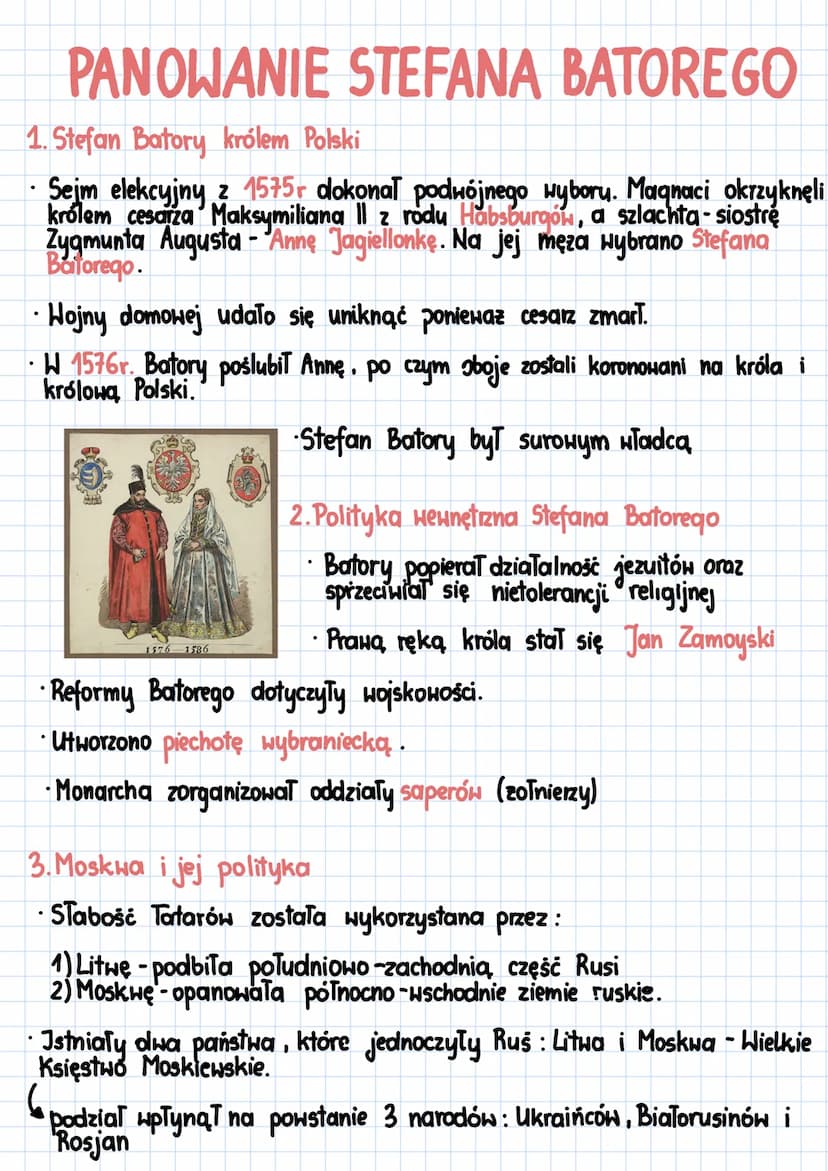 PANOWANIE STEFANA BATOREGO
1. Stefan Batory królem Polski
· Sejm elekcyjny z 1575r dokonał podwójnego wyboru. Magnaci okrzyknęli
królem cesarza Maksymiliana II z rodu Habsburgów, a szlachta - siostrę
Zygmunta Augusta - Annę Jagiellonkę. Na jej męża wybrano Stefana
Batorego.
· Wojny domowej udało się uniknąć ponieważ cesarz zmarł.
· W 1576r. Batory poślubił Annę, po czym oboje zostali koronowani na króla i
królową Polski.
· Stefan Batory był surowym władcą
1576 1586
2. Polityka wewnętrzna Stefana Batorego
· Batory popierał działalność jezuitów oraz
sprzeciwiał się nietolerancji religijnej
· Prawą ręką króla stał się Jan Zamoyski
· Reformy Batorego dotyczyły wojskowości.
· Utworzono piechotę wybraniecką.
· Monarcha zorganizował oddziały saperów (żołnierzy)
3. Moskwa i jej polityka
· Słabość Tatarów została wykorzystana przez:
1) Litwę - podbiła południowo-zachodnią część Rusi
2) Moskwę - opanowała północno-wschodnie ziemie ruskie.
· Istniały dwa państwa, które jednoczyły Ruś: Litwa i Moskwa - Wielkie
Księstwo Moskiewskie.
podział wpłynął na powstanie 3 narodów: Ukraińców, Białorusinów i
Rosjan